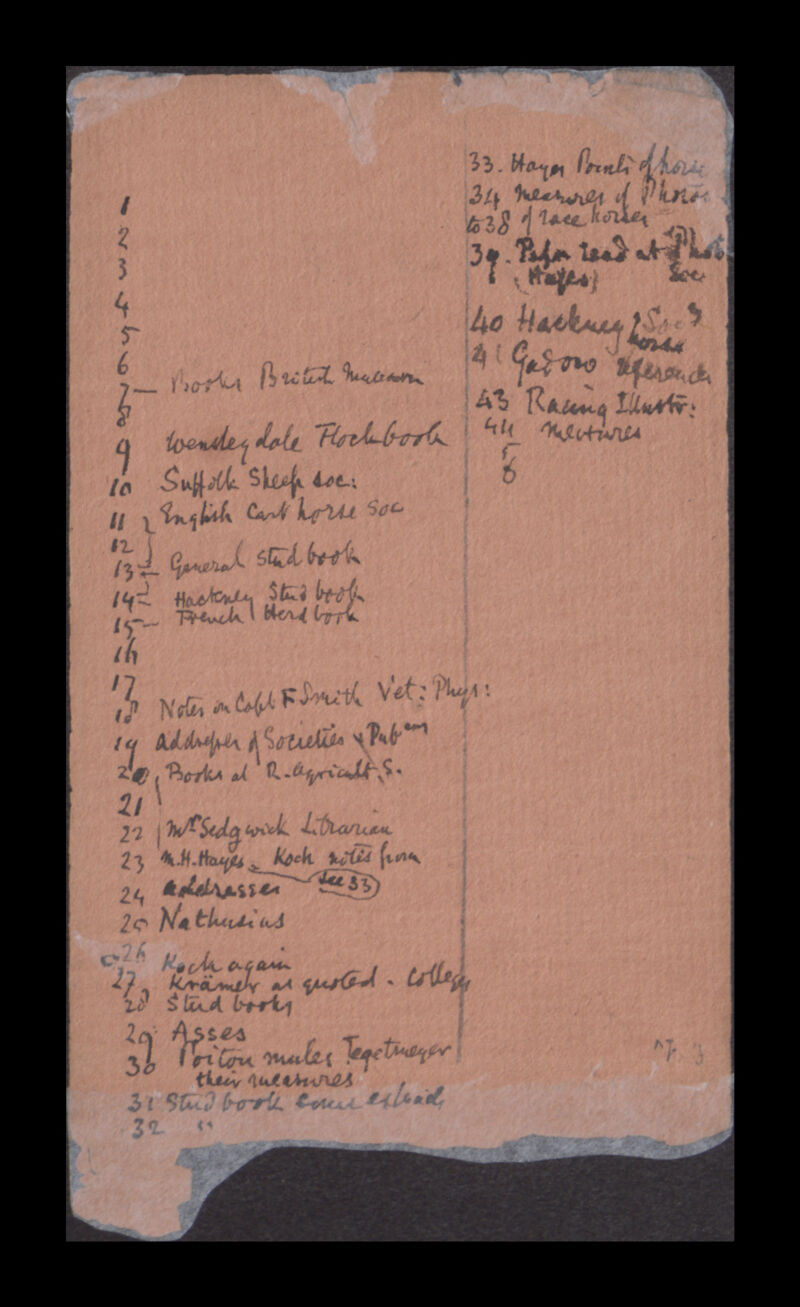 1
2
3
4
5
6
7 — Books British Museum
8
9 Wensleydale Flockbook
10 Suffolk Sheep soc:
11 English Cart horse Soc
12
13 General Stud book
14 Hackney Stud book
15 — French Herd book
16
17
18 Notes on Capt F Smith Vet: Phys:
19 Addresses of Societies & Pubans
20 Books at R. Agricult. S.
21
22 Mr Sedgwick Librarian
23 M.H. Hayes. Koch notes from
24 addresses see 33
25 Nathusius
26 Koch again
27 Krämer as quoted - College
28 Stud books
29 Asses
30 Poitou mules Tegetmeyer
their measures
31 Stud book
32 "
33. Hayes Points of horse
34 measures of Photos
to 38 of race horses
39. Paper read at Phot
(Hayes) Soc
40 Hackney Soc
horse
41 references
43 Racing Illustr:
44
5
6